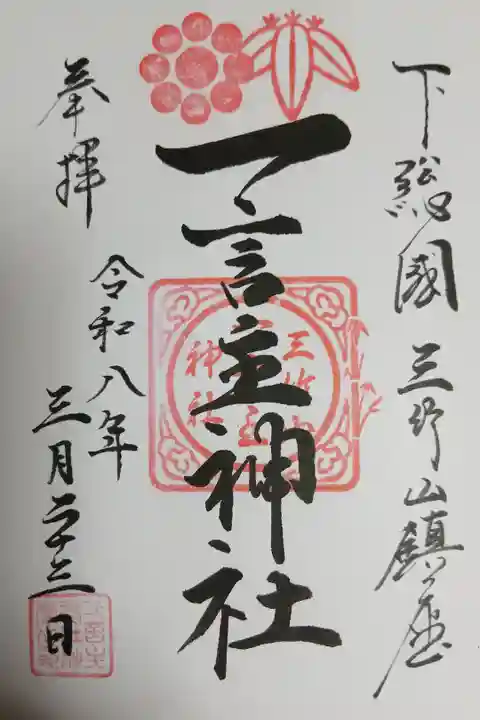 下総國 三竹山鎮座
一言主神社
奉拝
令和八年
三月二十三日
三竹山
神社